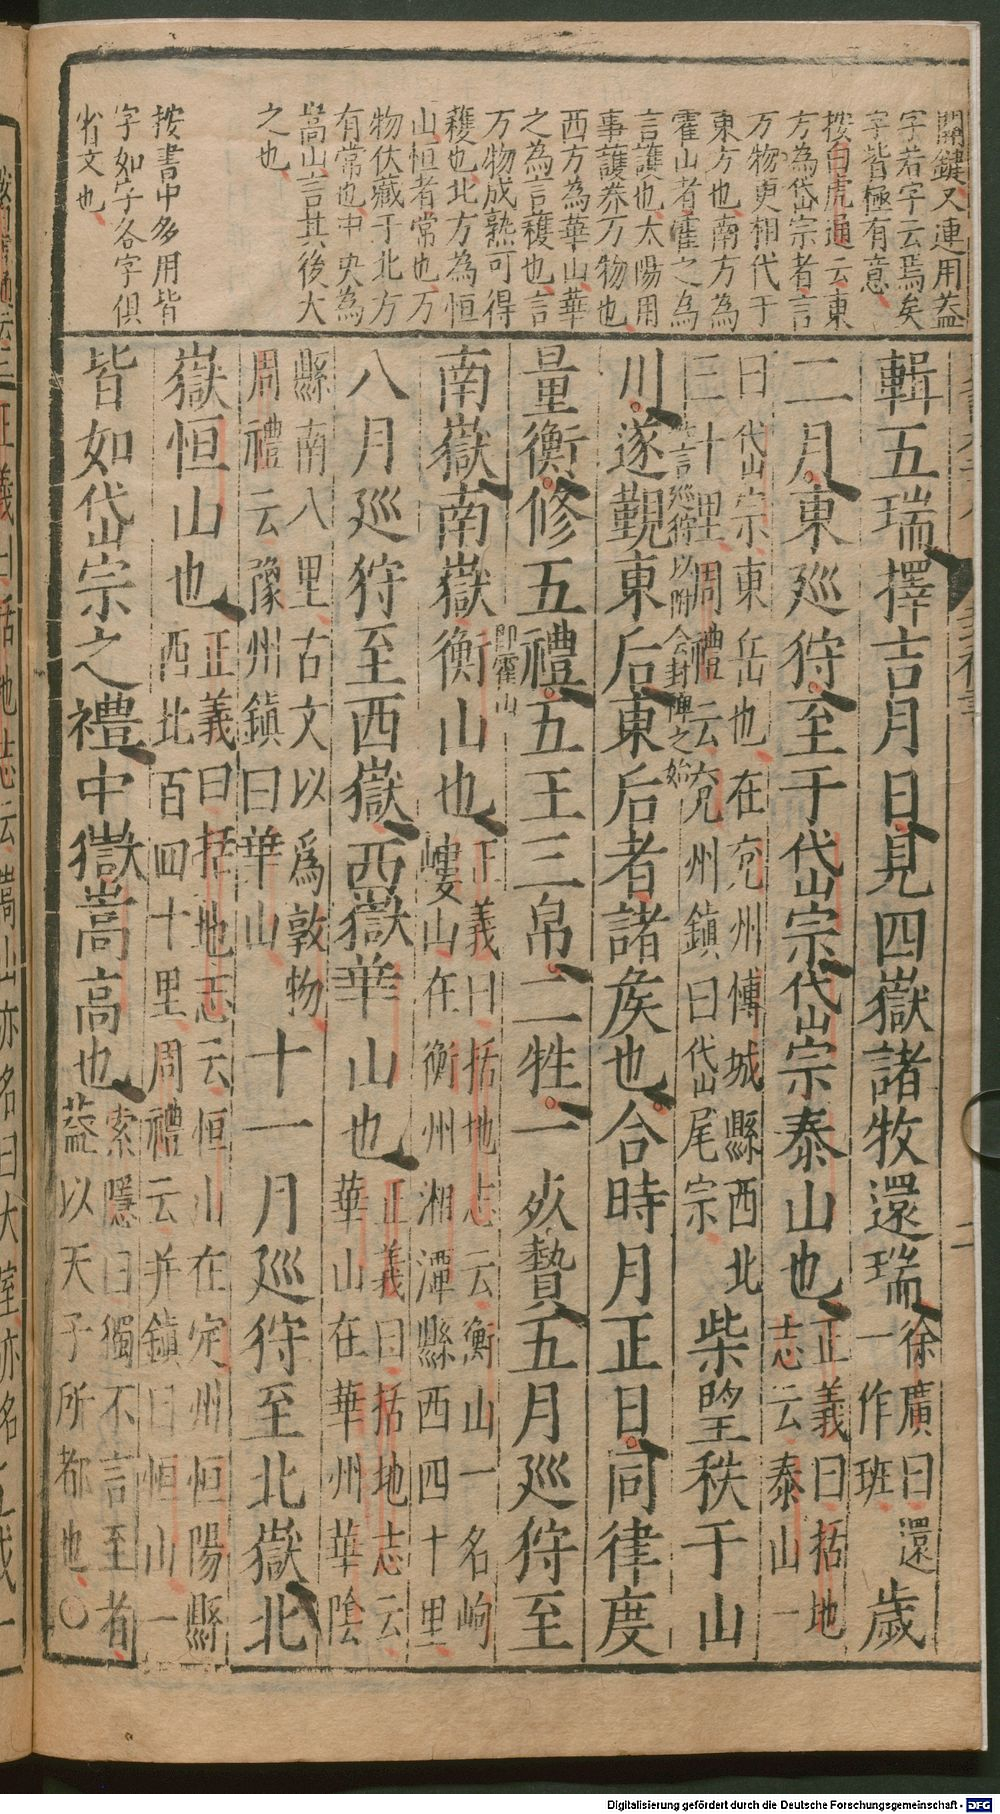 開鍵又連用蓋
字若字云焉矣
字皆極有意
按白虎通云東
方為岱宗者言
万物更相代于
東方也南方為
霍山者霍之為
言護也太陽用
事護养万物也
西方為華山華
之為言穫也言
万物成熟可得
穫也北方為恒
山恒者常也万
物伏藏于北方
有常也中央為
嵩山言其後大
之也
按書中多用皆
字如字各字俱
省文也
輯五瑞擇吉月日見四嶽諸牧還瑞徐廣曰還一作班歲
二月東巡狩至于岱宗岱宗泰山也正義曰括地志云泰山一
曰岱宗東岳也在兗州博城縣西北三十里周禮云兗州鎮曰岱山尾宗柴望秩于山
空言巡狩以附合封禪之始
川遂覲東后東后者諸矦也合時月正日同律度
量衡修五禮五玉三帛二牲一死贄五月巡狩至
即霍山
南嶽南嶽衡山也正義曰括地志云衡山一名岣嶁山在衡州湘潭縣西四十里
八月巡狩至西嶽西嶽華山也正義曰括地志云華山在華州華陰
縣南八里古文以爲敦物周禮云豫州鎮曰華山十一月巡狩至北嶽北
嶽恒山也正義曰括地志云恒山在定州恒陽縣西北百四十里周禮云并鎮曰恒山一
皆如岱宗之禮中嶽嵩高也索隱曰獨不言至者蓋以天子所都也〇
Digitalisierung gefördert durch die Deutsche Forschungsgemeinschaft - DFG